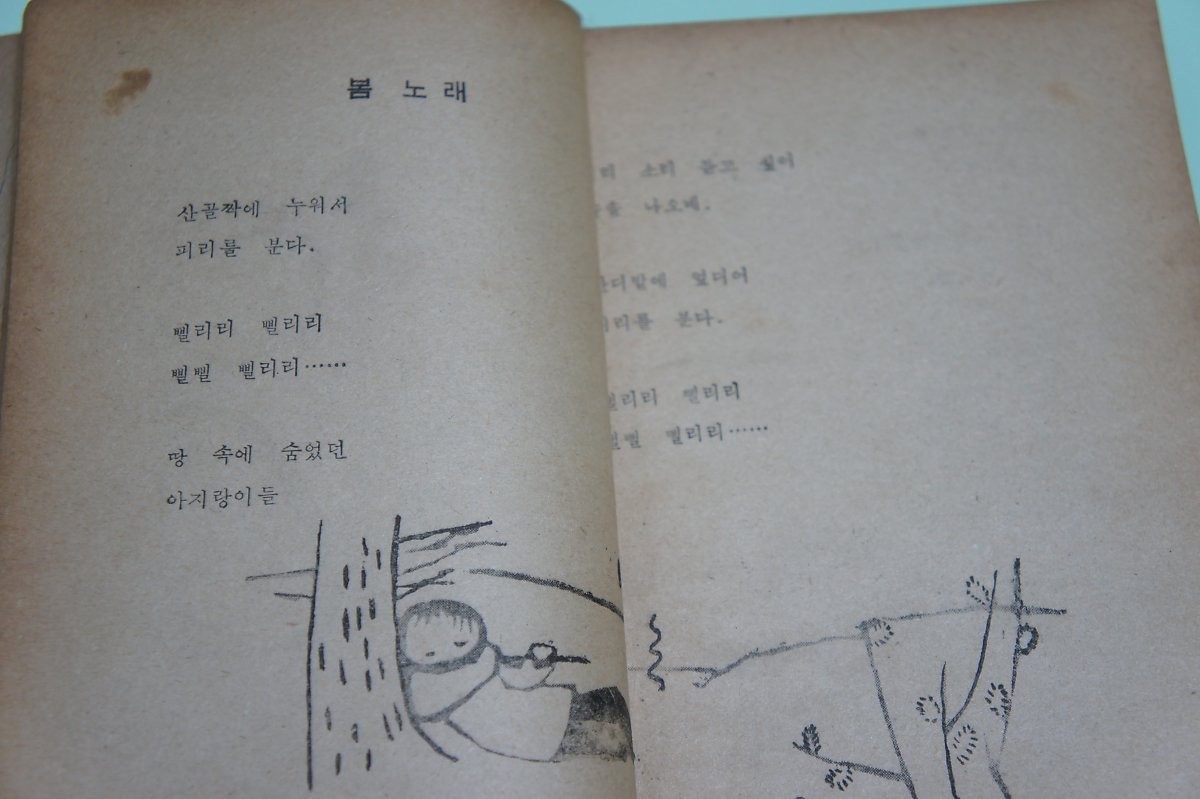 봄 노래
산골짝에 누워서
피리를 분다.
삘리리 삘리리
삘삘 삘리리……
땅 속에 숨었던
아지랑이들
소리 듣고 싶어
나오네.
엎디어
분다.
삘리리
삘리리……